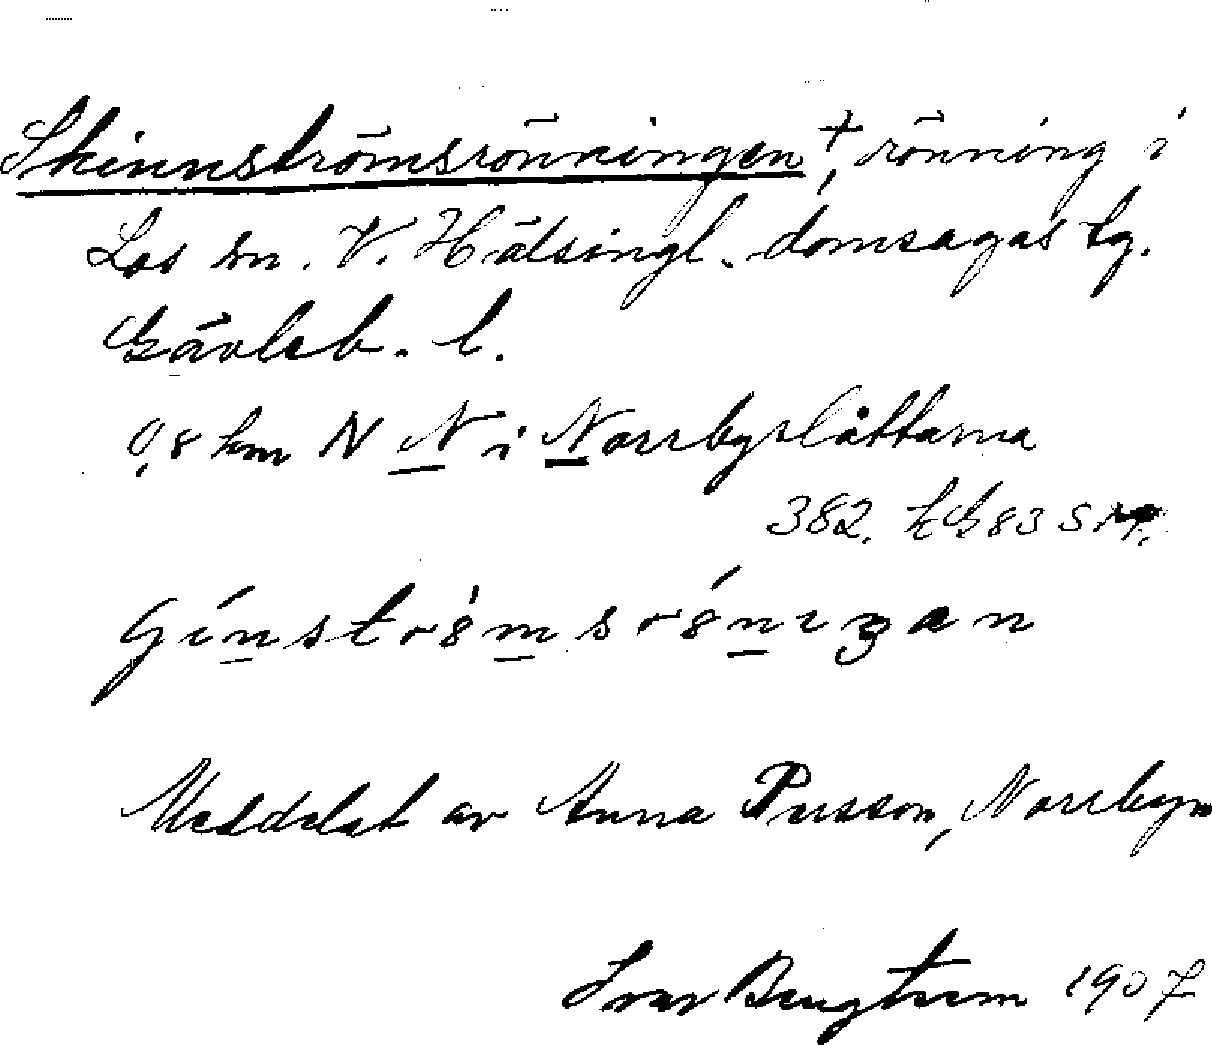 Skinnströmsrönningen +, rönning i
Los sn. V. Hälsingl. domsagas tg.
Gävleb. l.
0,8 km N N i Norrbyslåttarna
382. 83
Meddelat av Anna Persson, Norrbyn
Ivar Bengtsson 1907